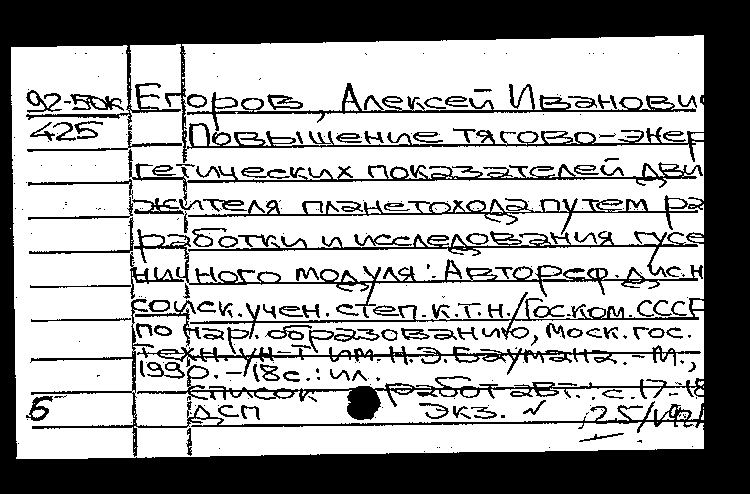 92-50к Егоров, Алексей Иванови
425 Повышение тягово-энер
гетических показателей дви
жителя планетохода путем ра
работки и исследования гусе
ничного модуля: Автореф. дис. н
соиск. учен. степ. к.т.н./Гос. ком. СССР
по нар. образованию, Моск. гос.
техн. ун-т им. Н.Э. Баумана. - М.,
1990. - 18 с.: ил.
список работ авт.: с. 17-18
б ДСП экз. ✓